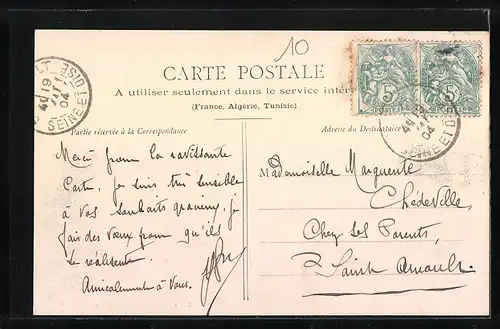 10
CARTE POSTALE
A utiliser seulement dans le service intér
(France, Algérie, Tunisie)
Partie réservée à la Correspondance
Adresse du Destinataire
Merci pour la ravissante
Carte, je suis très sensible
à vos souhaits gracieux, je
fais des vœux pour qu'ils
se réalisent.
Amicalement à Vous.
Mademoiselle Marguerite
Chédeville,
Chez Ses Parents,
Saint Arnoult.
SEINE ET OISE
04
5c
5c
SEINE ET OI
04